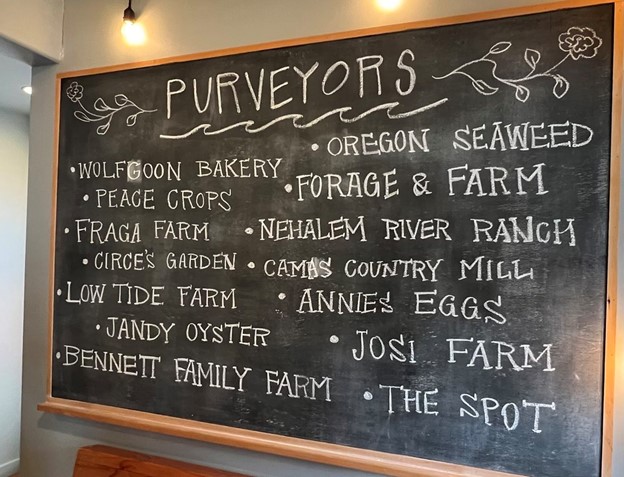 PURVEYORS
• WOLFGOON BAKERY
• PEACE CROPS
• FRAGA FARM
• CIRCE'S GARDEN
• LOW TIDE FARM
• JANDY OYSTER
• BENNETT FAMILY FARM
• OREGON SEAWEED
• FORAGE & FARM
• NEHALEM RIVER RANCH
• CAMAS COUNTRY MILL
• ANNIES EGGS
• JOSI FARM
• THE SPOT